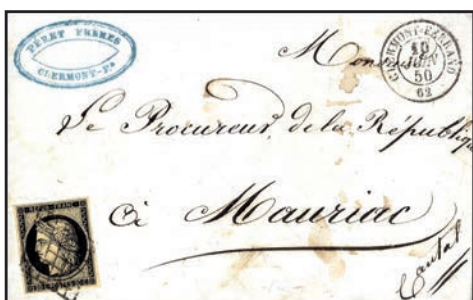 PERET FRERES
CLERMONT-Fd
CLERMONT-FERRAND
10
JUIN
50
62
Monsieur
Le Procureur de la République
à Mauriac
Cantal
REPUB. FRANC.